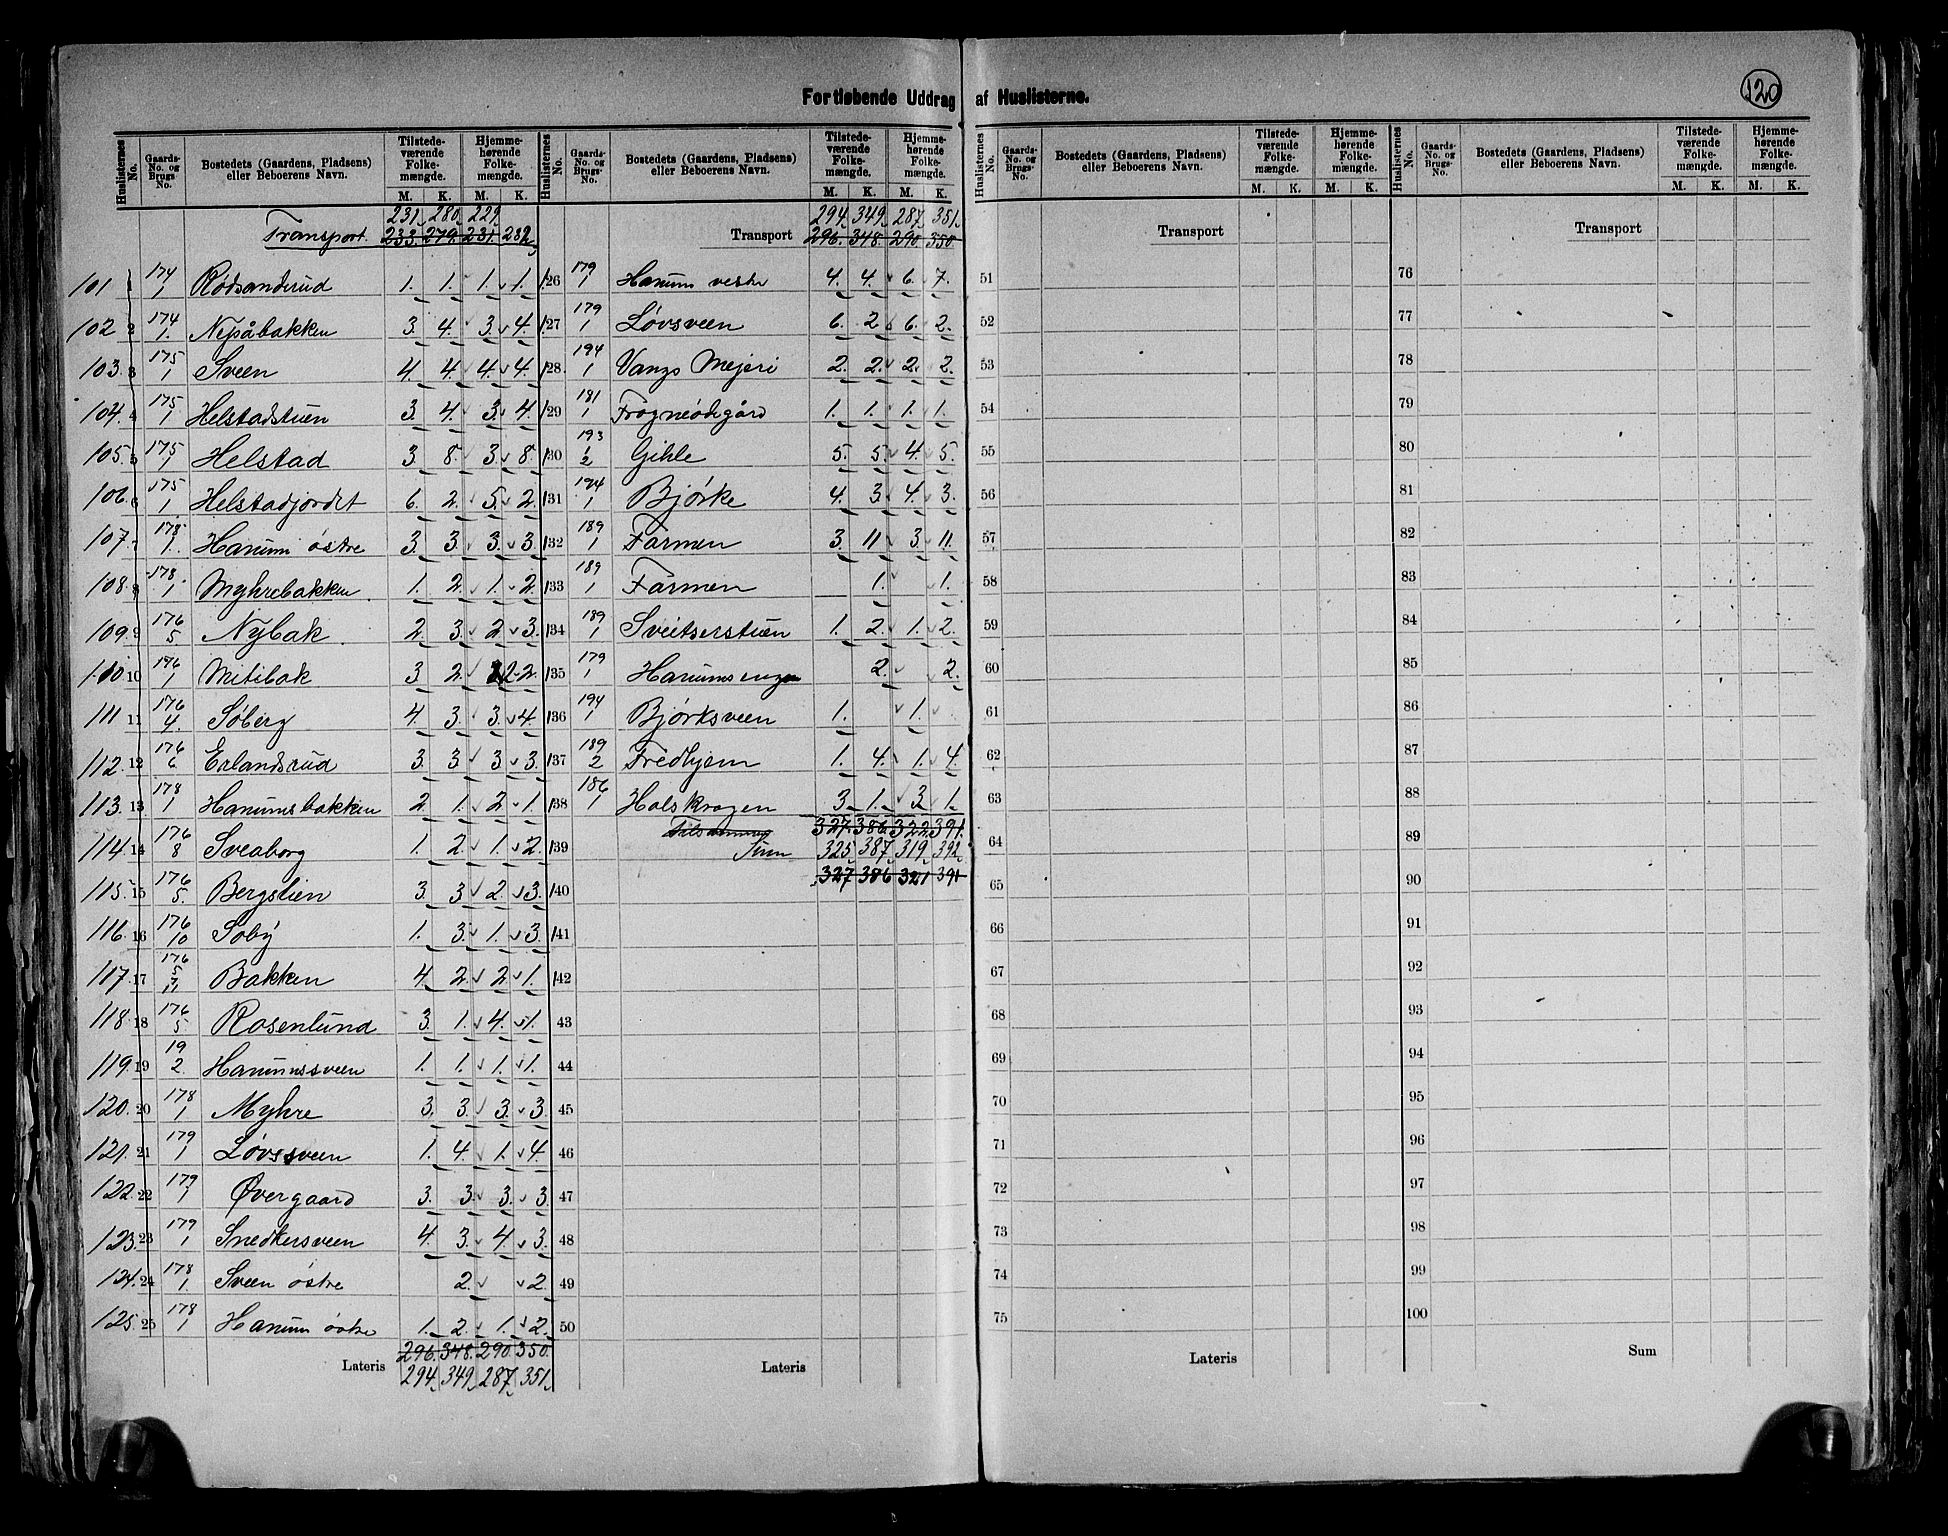 Fortløbende Uddrag af Huslisterne.
120
Huslisternes No. Gaards-No. og Brugs-No. Bostedets (Gaardens, Pladsens) eller Beboerens Navn. Tilstedeværende Folkemængde. M. K. Hjemmehørende Folkemængde. M. K.
231. 280. 229.
Transport. 233. 279. 231. 282.
101 1 174/1 Rødsanderud 1. 1. 1. 1.
102 2 174/1. Nepåbakken 3. 4. 3. 4.
103. 3 175/1 Sveen 4. 4. 4. 4.
104. 4 175/1 Helstadstuen 3. 4. 3. 4.
105. 5 175/1 Helstad 3. 8. 3. 8.
106. 6 175/1 Helstadjordet 6. 2. 5. 2.
107. 7 178/1. Hanum østre 3. 3. 3. 3.
108. 8 178./1 Myhrebakken 1. 2. 1. 2.
109. 9 176/5 Nybak 2. 3. 2. 3.
110. 10 176/1 Mitibak 3 2. 2. 2.
111 11 176/4. Søberg 4. 3. 3. 4.
112. 12 176/6 Erlandsrud 3. 3. 3. 3.
113. 13 178/1 Hanumsbakken 2. 1. 2. 1.
114. 14 176/8 Sveaborg 1. 2. 1. 2.
115. 15 176/5. Bergstien 3. 3. 2. 3.
116. 16 176/10 Søbÿ 1. 3. 1. 3.
117. 17 176/5 11 Bakken 4. 2. 2. 1.
118. 18 176/5 Rosenlund 3. 1. 4. 1.
119. 19 19/2. Hanumssveen 1. 1. 1. 1.
120. 20 178/1 Myhre 3. 3. 3. 3.
121. 21 179/1 Løvssveen 1. 4. 1. 4.
122. 22 179/1 Øvergaard 3. 3. 3. 3.
123. 23 179/1 Snedkersveen 4. 3. 4. 3.
124. 24 178/1. Sveen østre 2. 2.
125. 25 178/1 Hanum østre 1. 2. 1. 2.
296. 348. 290. 350.
Lateris 294. 349. 287. 351.
Huslisternes No. Gaards-No. og Brugs-No. Bostedets (Gaardens, Pladsens) eller Beboerens Navn. Tilstedeværende Folkemængde. M. K. Hjemmehørende Folkemængde. M. K.
294. 349. 287. 351.
Transport 296. 348. 290. 350
126 179/1 Hanum vestre 4. 4. 6. 7.
127 179/1 Løvsveen 6. 2 6. 2.
128. 194/1 Vangs Mejeri 2. 2. 2. 2.
129 181/1 Frogneødegård 1. 1. 1. 1.
130 193/1 2 Gihle 5. 5. 4. 5.
131 194/1 Bjørke 4. 3. 4. 3.
132 189/1 Farmen 3. 11. 3. 11.
133 189/1 Farmen 1. 1.
134 189/1 Sveitserstuen 1. 2. 1. 2.
135 179/1 Hanumsengen 2. 2.
136 194/1 Bjørksveen 1. 1.
137 189/2 Fredhjem 1. 4. 1. 4.
138 186/1 Halskragen 3. 1. 3. 1.
139 Tilsammen 327. 386. 322. 391.
Sum 325. 387. 319. 392.
140 327 386 321 391
141
142
43
44
45
46
47
48
49
50
Lateris
Huslisternes No. Gaards-No. og Brugs-No. Bostedets (Gaardens, Pladsens) eller Beboerens Navn. Tilstedeværende Folkemængde. M. K. Hjemmehørende Folkemængde. M. K.
Transport
51
52
53
54
55
56
57
58
59
60
61
62
63
64
65
66
67
68
69
70
71
72
73
74
75
Lateris
Huslisternes No. Gaards-No. og Brugs-No. Bostedets (Gaardens, Pladsens) eller Beboerens Navn. Tilstedeværende Folkemængde. M. K. Hjemmehørende Folkemængde. M. K.
Transport
76
77
78
79
80
81
82
83
84
85
86
87
88
89
90
91
92
93
94
95
96
97
98
99
100
Sum